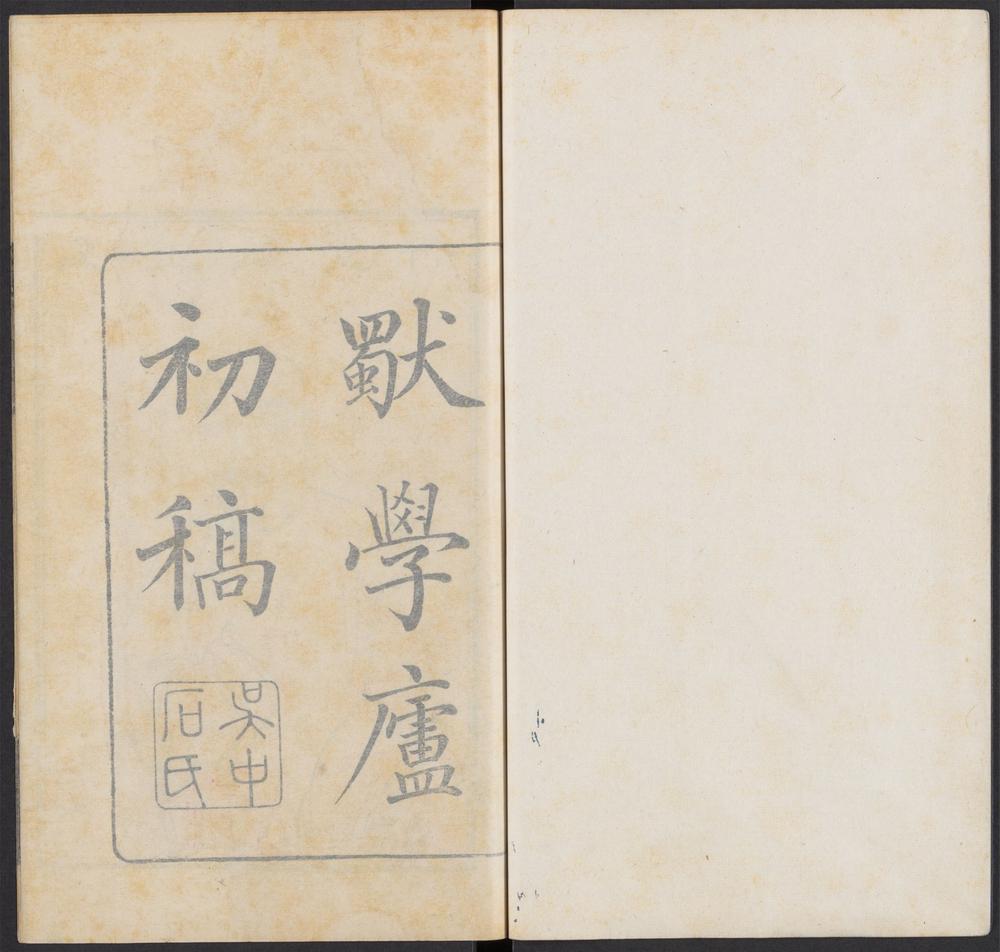 獨學廬
初稿
吳中
石氏